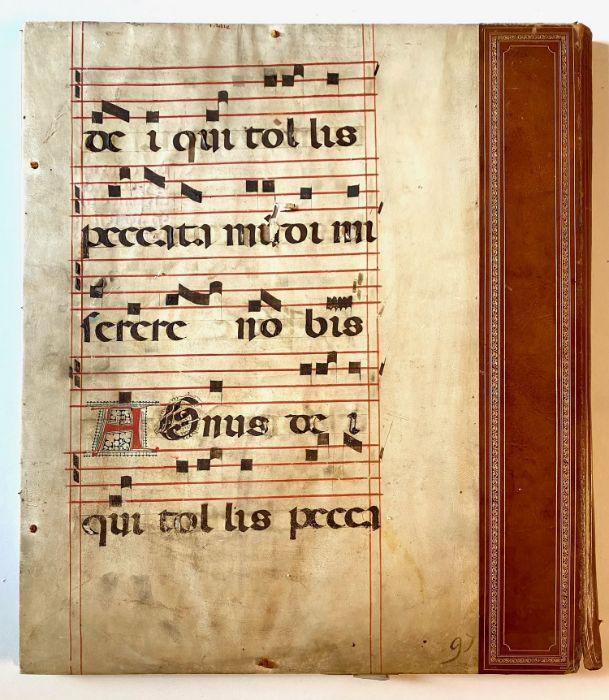 de i qui tol lis
peccata mundi mi
serere no bis
AGnus de i
qui tol lis pecca